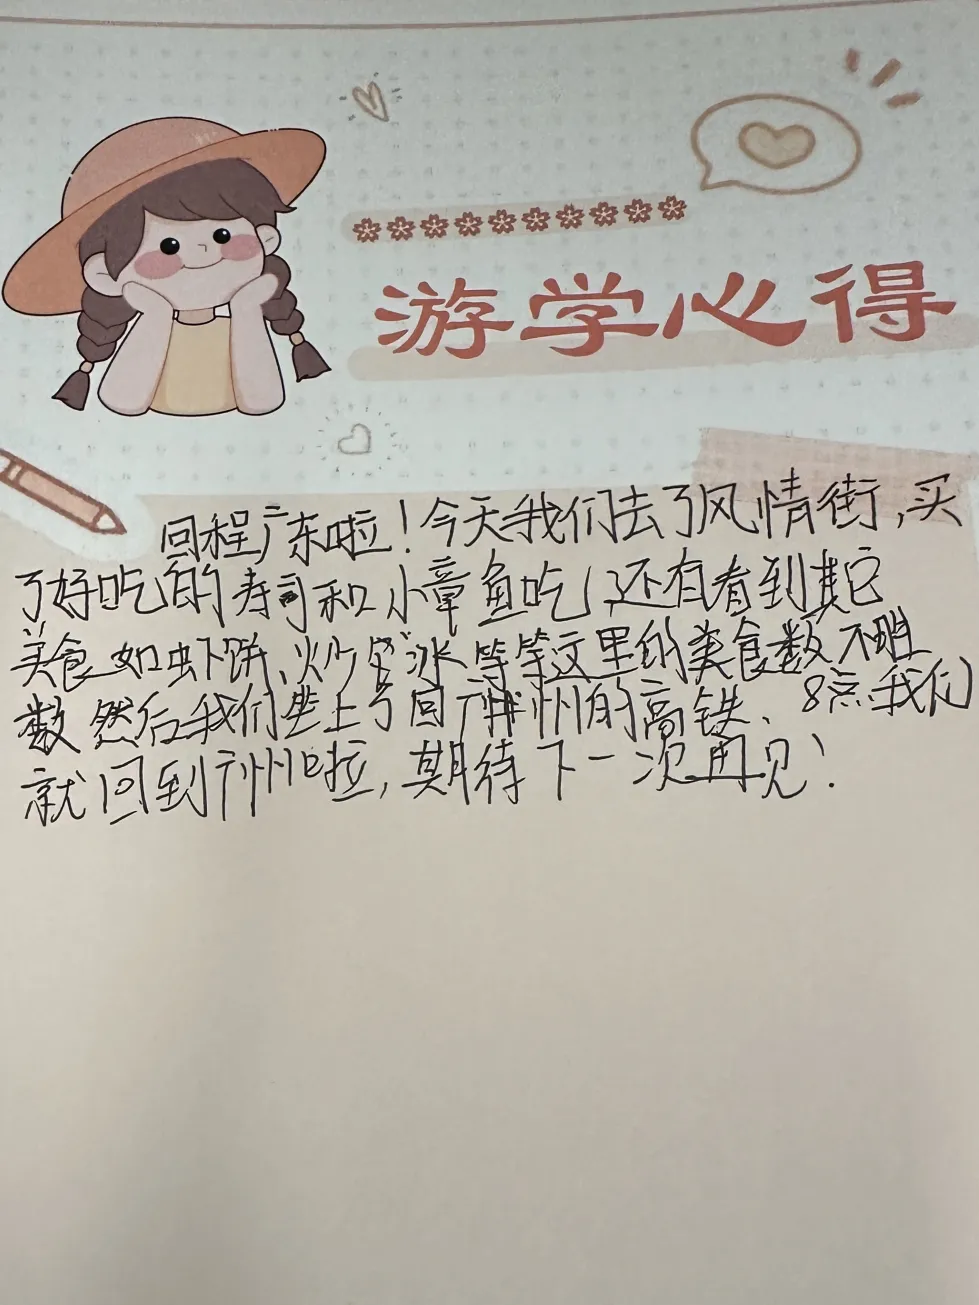 游学心得
回程广东啦！今天我们去了风情街,买
了好吃的寿司和小章鱼吃！,还有看到其它
美食如虾饼、炒酸冰等等这里的美食数不胜
数然后我们坐上了回广州的高铁、8点我们
就回到广州啦,期待下一次再见！